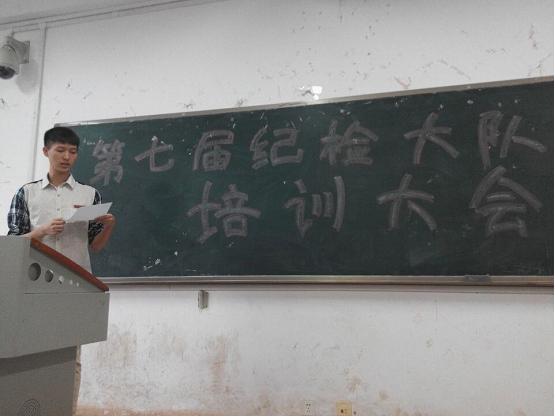 第七届纪检大队
培训大会